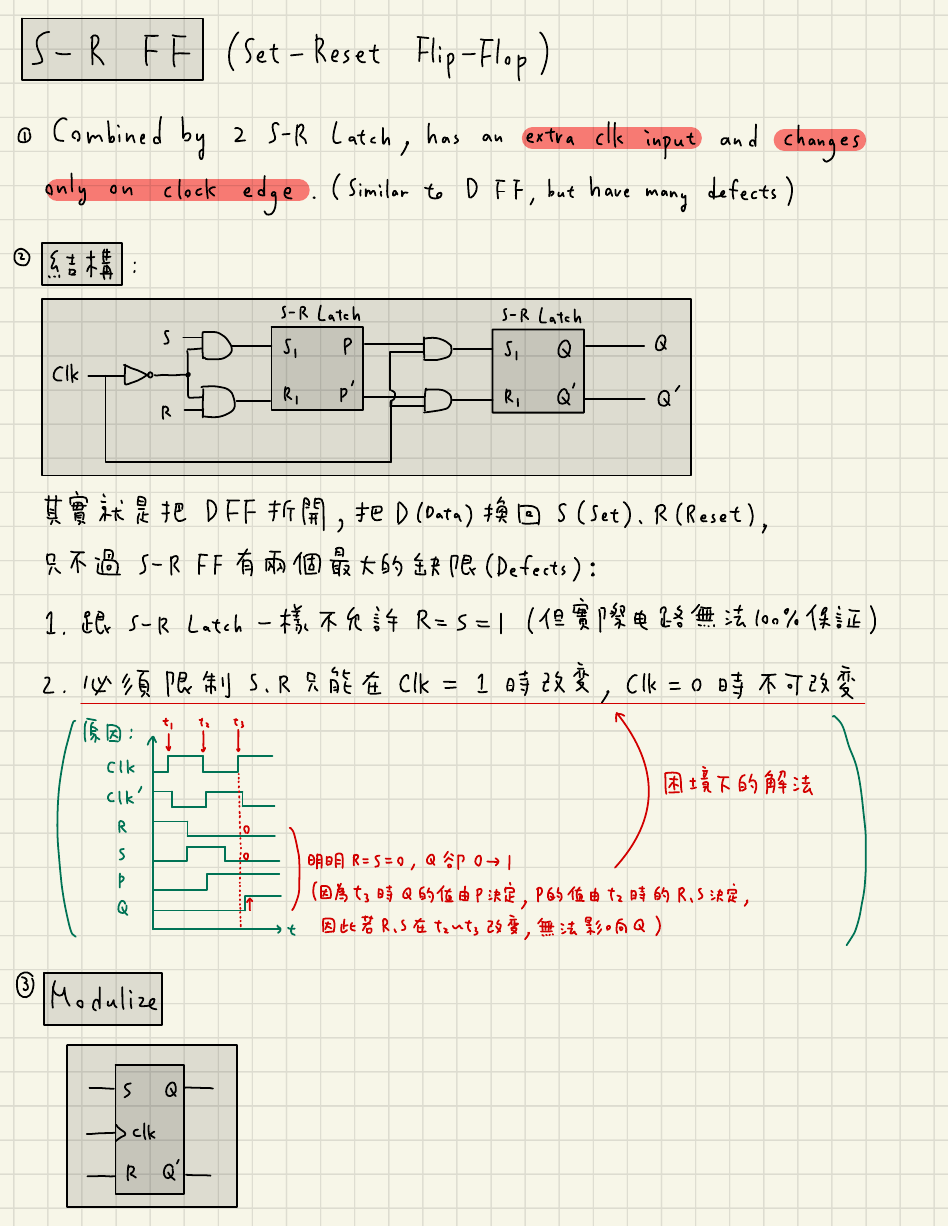 S-R FF (Set-Reset Flip-Flop)
① Combined by 2 S-R Latch, has an extra clk input and changes
only on clock edge. (Similar to D FF, but have many defects)
② 結構:
S-R Latch S-R Latch
S S₁ P S₁ Q Q
Clk
R R₁ P' R₁ Q' Q'
其實就是把 DFF 拆開, 把 D(Data) 換回 S(Set)、R(Reset),
只不過 S-R FF 有兩個最大的缺限(Defects):
1. 跟 S-R Latch 一樣不允許 R=S=1 (但實際电路無法100%保証)
2. 必須限制 S、R 只能在 Clk = 1 時改變, Clk = 0 時不可改變
原因: t₁ t₂ t₃
Clk
Clk'
困境下的解法
R 0
S 0
明明 R=S=0, Q 卻 0→1
P
(因為 t₃ 時 Q 的值由 P 決定, P的值由 t₂ 時的 R、S 決定,
Q
因此若 R、S 在 t₂~t₃ 改變, 無法影响 Q)
t
③ Modulize
S Q
clk
R Q'